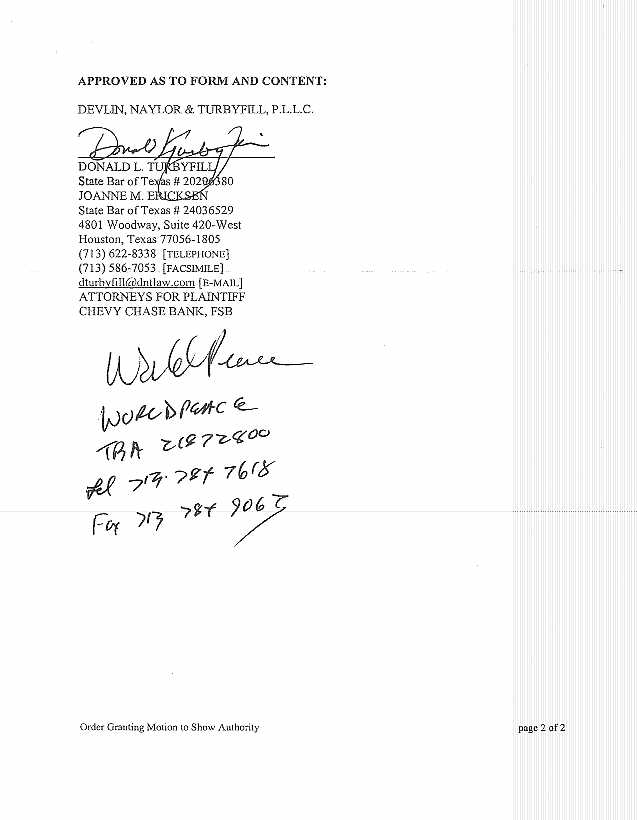 APPROVED AS TO FORM AND CONTENT:
DEVLIN, NAYLOR & TURBYFILL, P.L.L.C.
Donald Turbyfill
DONALD L. TURBYFILL
State Bar of Texas # 20296380
JOANNE M. ERICKSEN
State Bar of Texas # 24036529
4801 Woodway, Suite 420-West
Houston, Texas 77056-1805
(713) 622-8338 [TELEPHONE]
(713) 586-7053 [FACSIMILE]
dturbyfill@dntlaw.com [E-MAIL]
ATTORNEYS FOR PLAINTIFF
CHEVY CHASE BANK, FSB
WORLDPEACE
TBA 21872800
tel 713 784 7618
Fax 713 784 9063
Order Granting Motion to Show Authority page 2 of 2